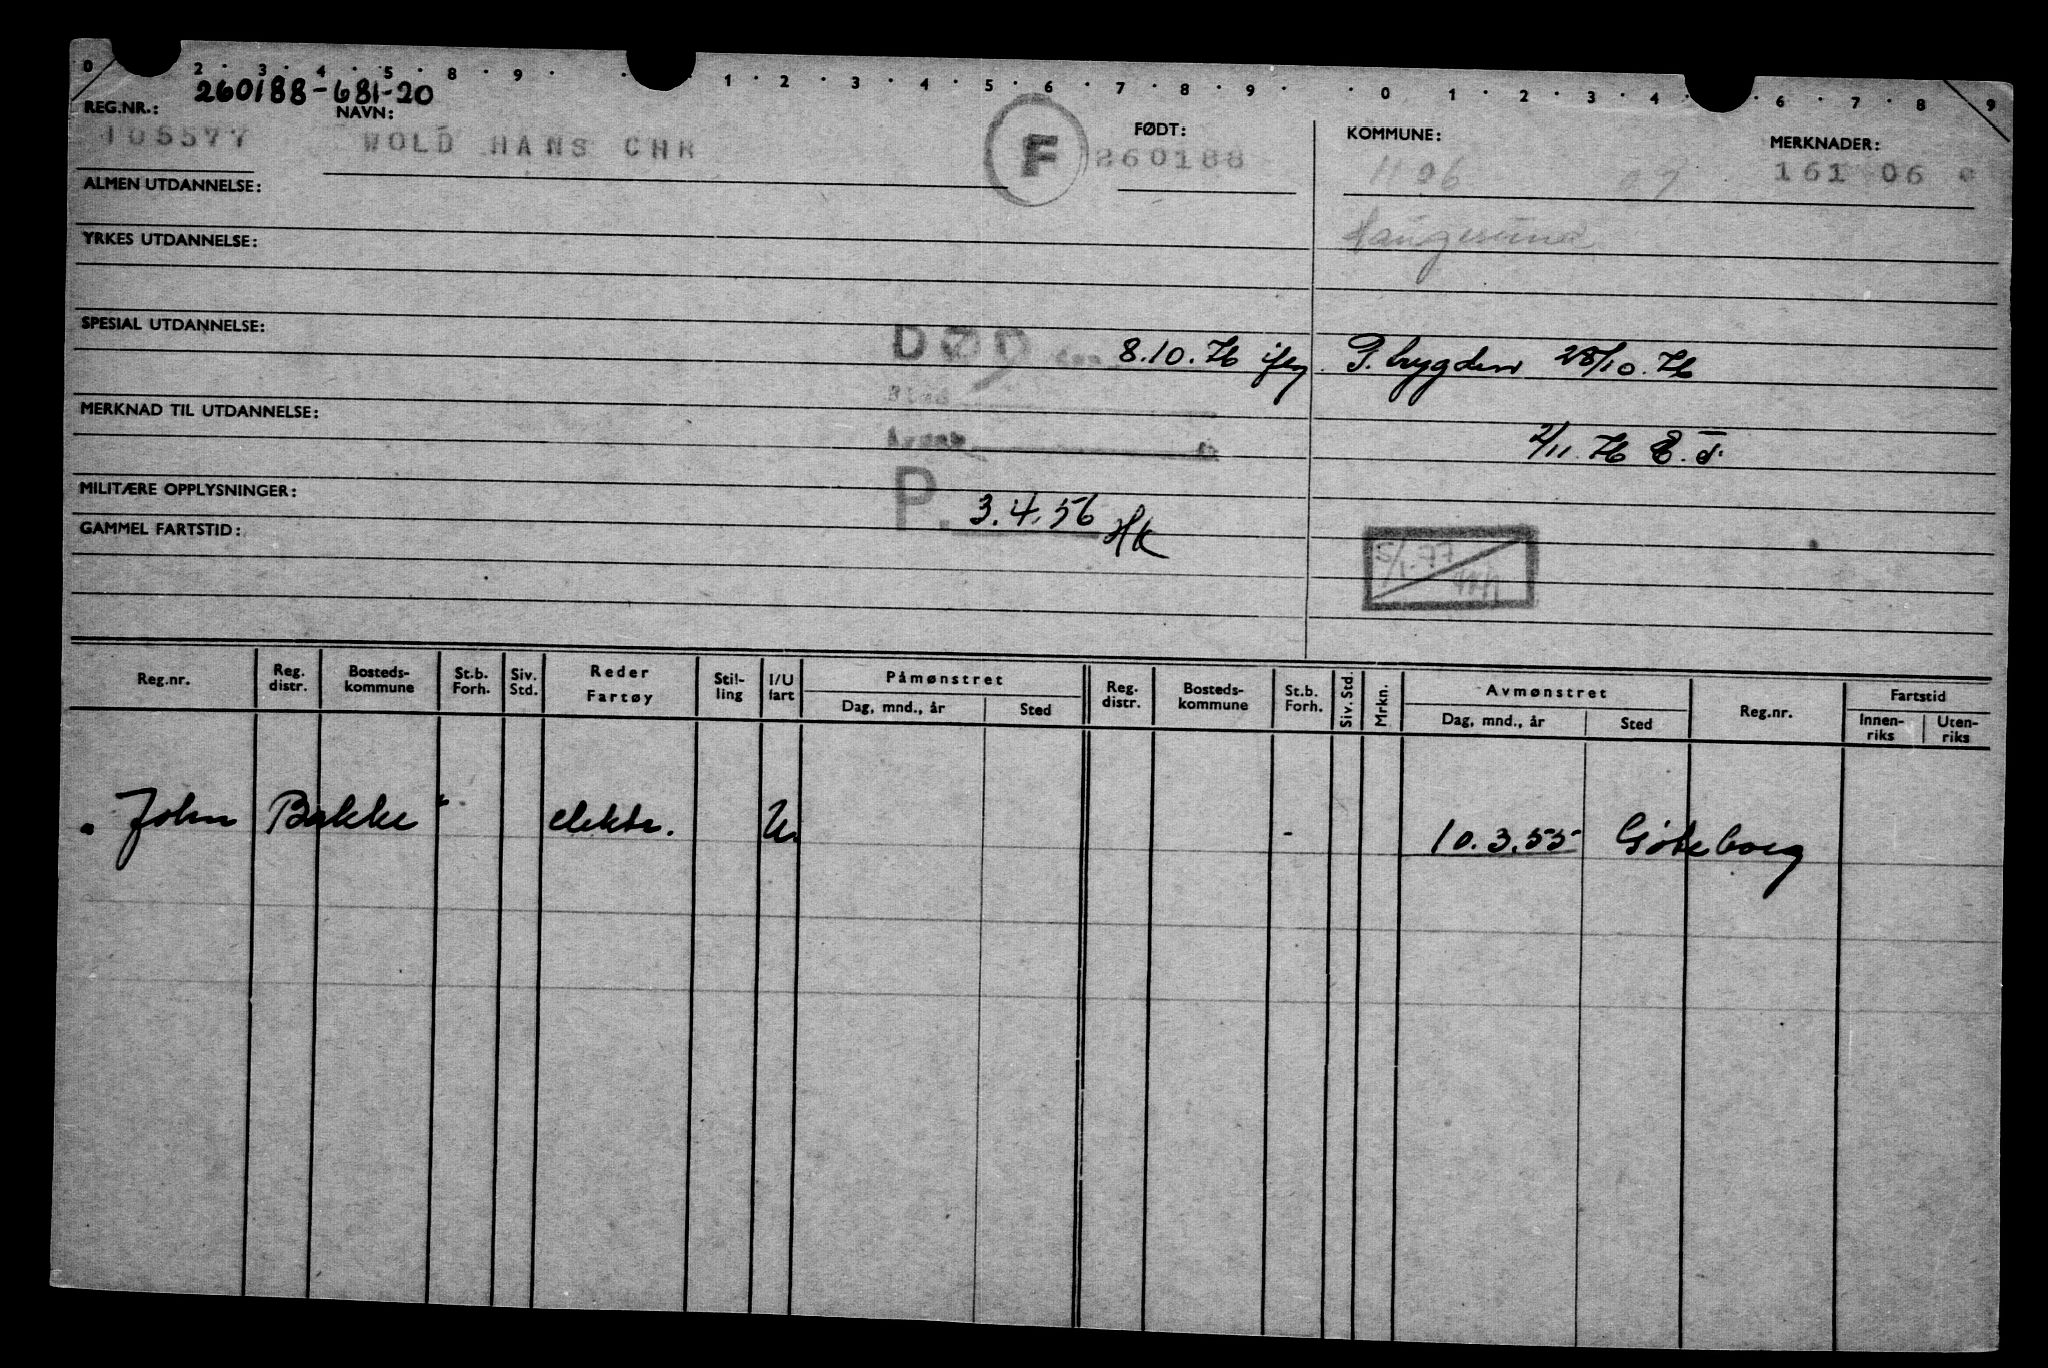 0 2 · 3 · 4 · 5 · 8 · 9 · · 1 · 2 · 3 · 4 · 5 · 6 · 7 · 8 · 9 · · 0 1 · 2 · 3 · 4 · 6 · 7 · 8 · 9
260188-681-20
REG.NR.: NAVN: FØDT: KOMMUNE: MERKNADER:
105577 WOLD HANS CHR F 260188 1106 07 161 06
ALMEN UTDANNELSE:
Haugesund
YRKES UTDANNELSE:
SPESIAL UTDANNELSE:
DØD den 8.10.76 iflg. P.trygden 28/10.76
Sted
MERKNAD TIL UTDANNELSE:
2/11.76 E.T.
MILITÆRE OPPLYSNINGER:
P. 3.4.56 HK
GAMMEL FARTSTID:
5/1.77
Reg.nr. Reg. distr. Bosteds-kommune St.b. Forh. Siv. Std. Reder Fartøy Stil-ling I/U fart Påmønstret Dag, mnd., år Sted Reg. distr. Bosteds-kommune St.b. Forh. Siv. Std. Mrkn. Avmønstret Dag, mnd., år Sted Reg.nr. Fartstid Innen-riks Uten-riks
"John Bakke" elektr. U. - 10.3.55 Gøteborg